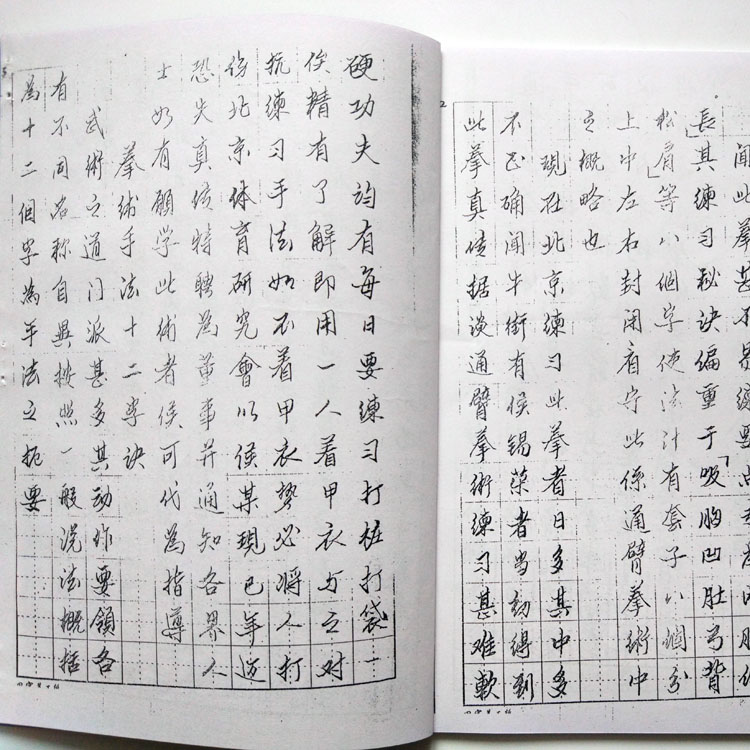 闻此拳甚不易練要
長其練习秘诀偏重于「吸胸凹肚弓背
松肩」等八個字使法计有套子八個分
上中左右封闭看守此係通臂拳術中
之概略也
现在北京練习此拳者日多其中多
不正确闻牛街有侯锡荣者当幼得到
此拳真传据谈通臂拳術練习甚难軟
硬功夫均有每日要練习打桩打袋一
俟精有了解即用一人着甲衣与之对
抗練习手法如不着甲衣势必将人打
伤北京体育研究會以侯某現已年迈
恐失真传特聘為董事并通知各界人
士如有願学此術者侯可代為指導
拳術手法十二字诀
武術之道门派甚多其动作要領各
有不同名称自異按照一般说法概括
為十二個字為手法之扼要